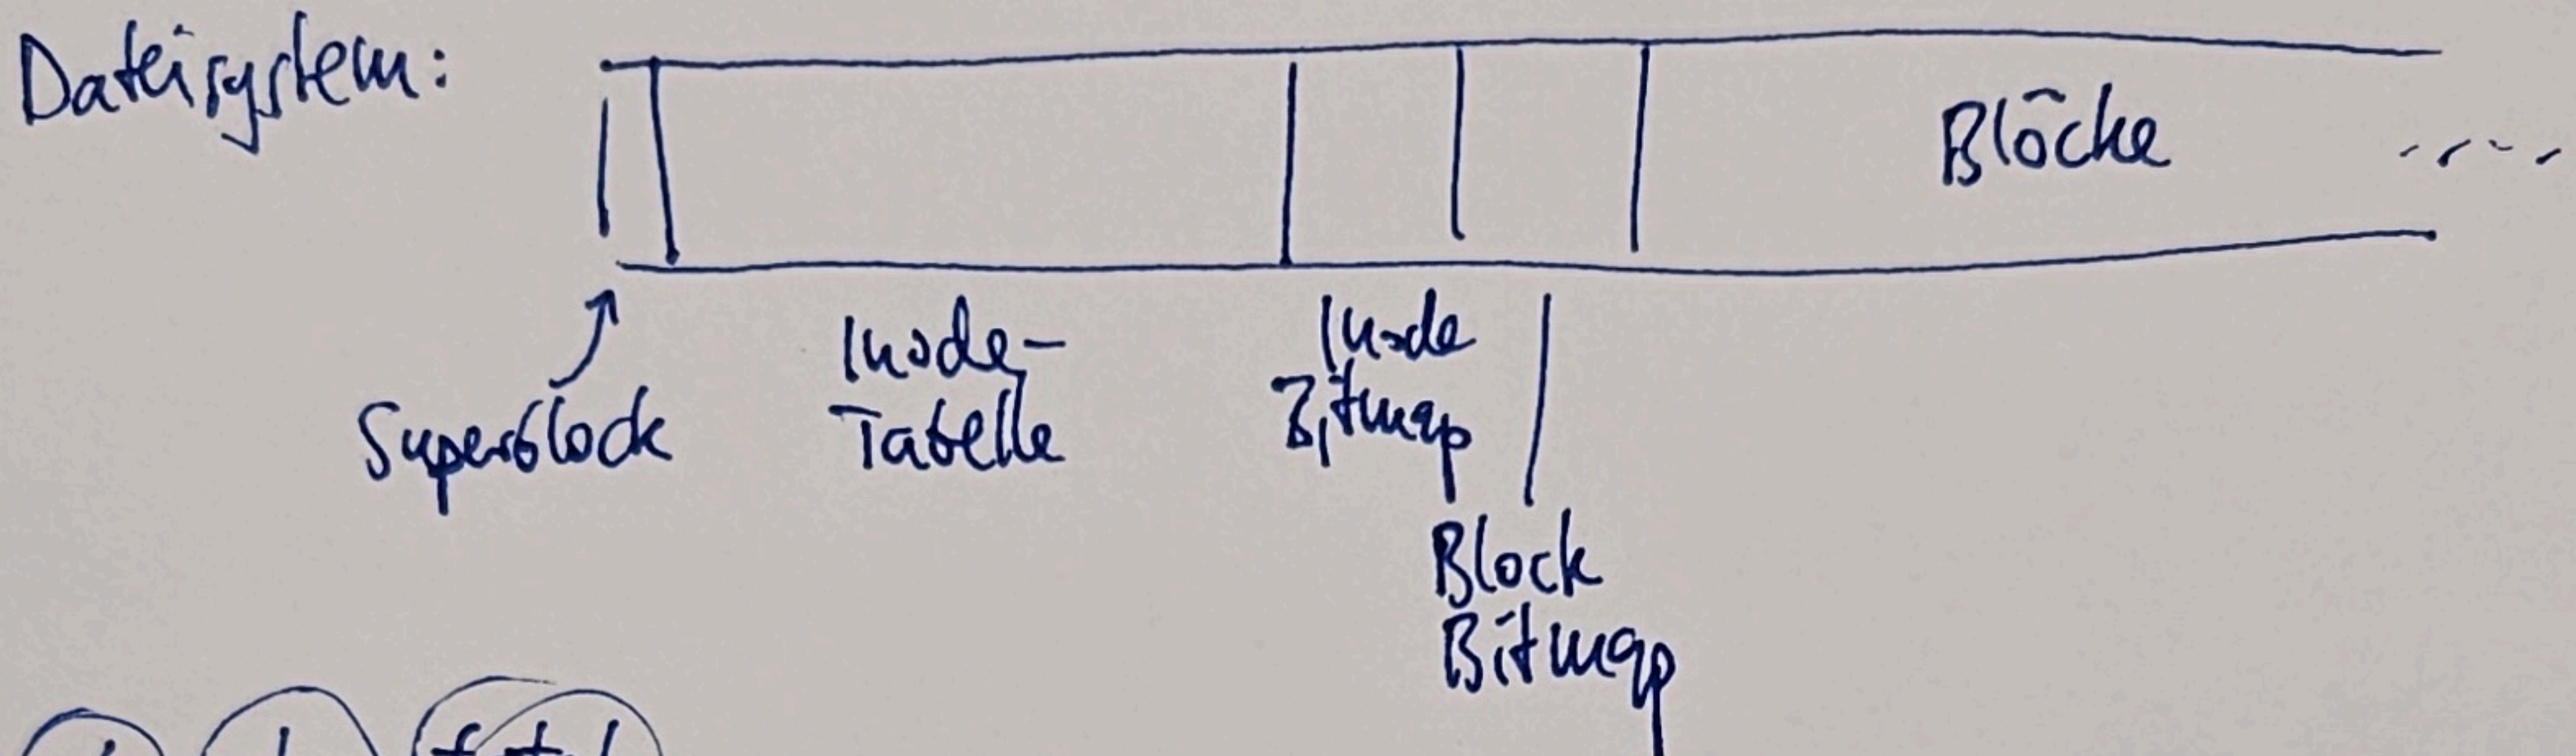 Dateisystem:
Blöcke
Superblock
Inode-
Tabelle
Inode
Bitmap
Block
Bitmap